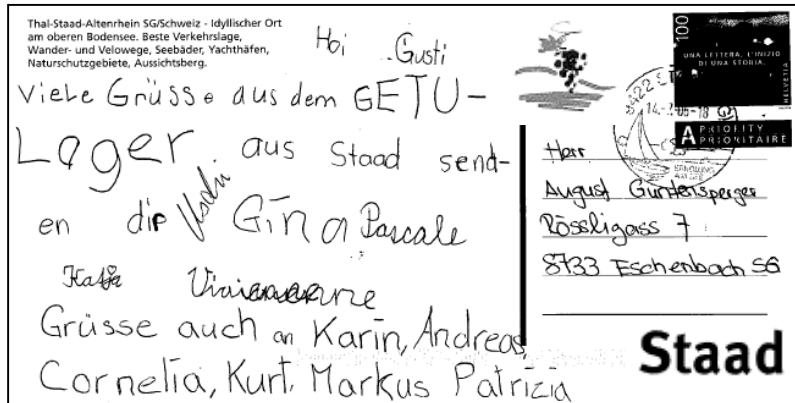 Thal-Staad-Altenrhein SG/Schweiz - Idyllischer Ort
am oberen Bodensee. Beste Verkehrslage,
Wander- und Velowege, Seebäder, Yachthäfen,
Naturschutzgebiete, Aussichtsberg.
Hoi Gusti
Viele Grüsse aus dem GETU-
Lager aus Staad send-
en dir Uschi Gina Pascale
Katja Vivienne
Grüsse auch an Karin, Andreas,
Cornelia, Kurt, Markus Patrizia
100
UNA LETTERA, L'INIZIO
DI UNA STORIA.
HELVETIA
A PRIORITY
PRIORITAIRE
9422 ST
14.-2-06-18
Herr
August Guntensperger
Rössligass 7
8733 Eschenbach SG
Staad